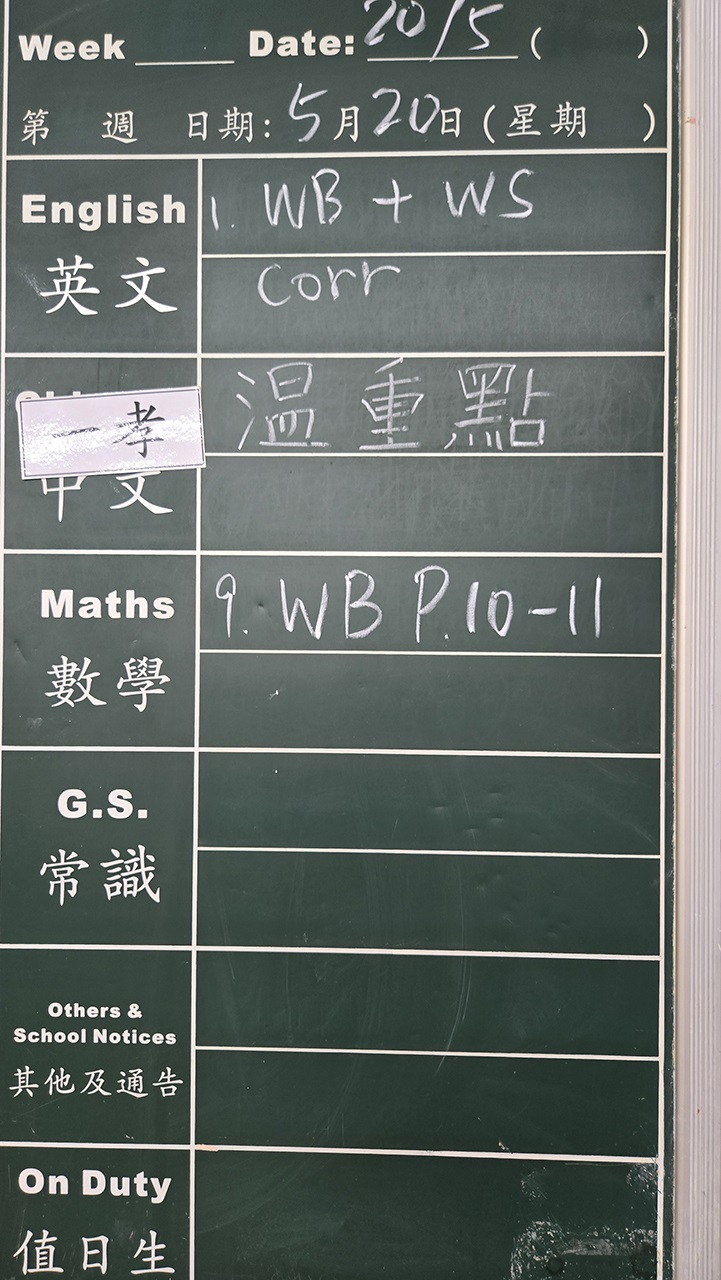 Week ____ Date: 20/5 ( )
第 週 日期: 5月20日 (星期 )
English 1. WB + WS
英文 corr
一孝 溫重點
中文
Maths 9. WB P.10-11
數學
G.S.
常識
Others &
School Notices
其他及通告
On Duty
值日生